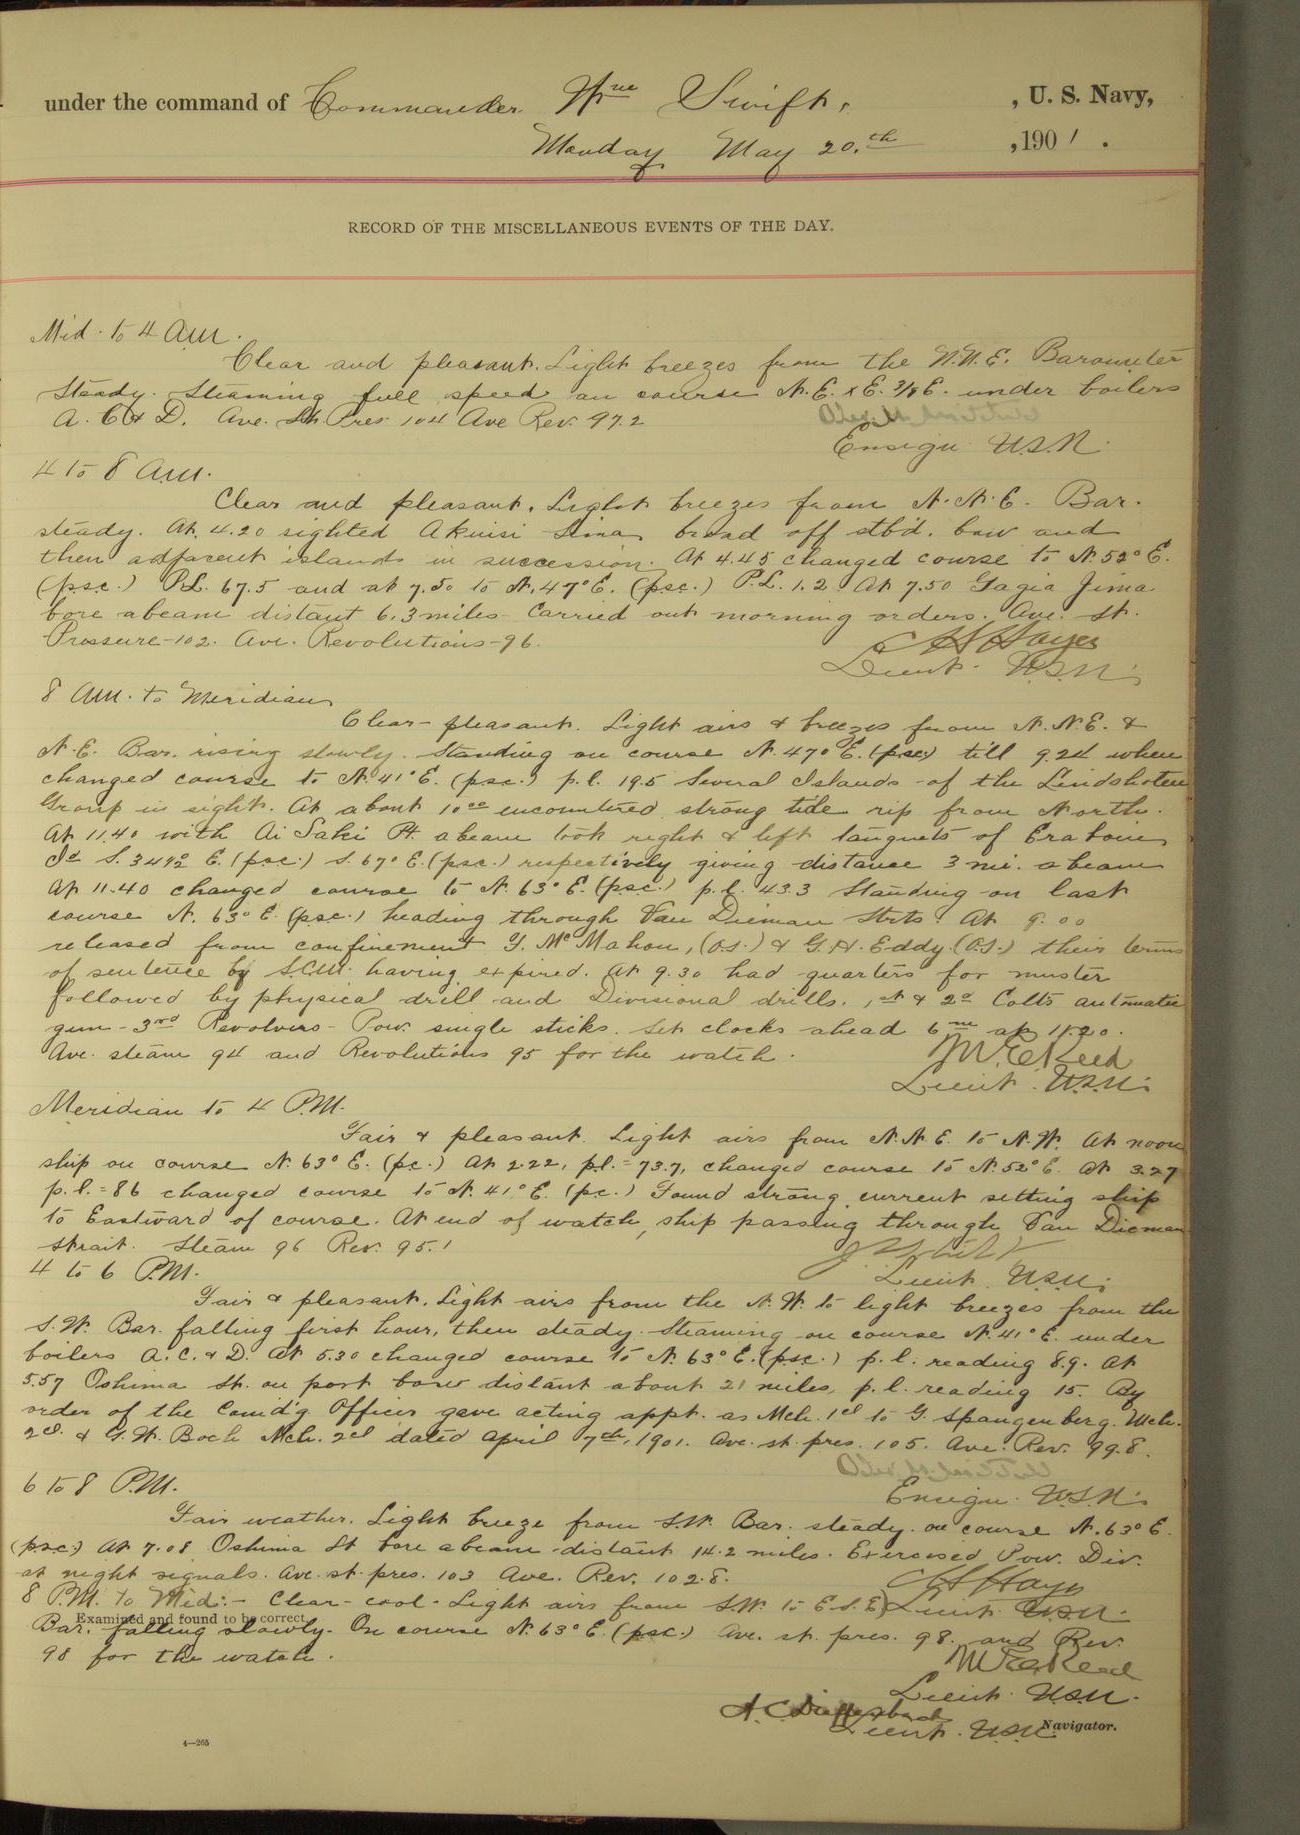 under the command of Commander Wm Swift, , U. S. Navy,
Monday May 20.th ,1901.
RECORD OF THE MISCELLANEOUS EVENTS OF THE DAY.
Mid. to 4 A.M.
Clear and pleasant. Light breezes from the N.N.E. Barometer
steady. Steaming full speed on course N.E. x E. 3/8 E. under boilers
A. C. & D. Ave. St. Pres. 104 Ave Rev. 97.2
Ensign U.S.N.
4 to 8 A.M.
Clear and pleasant. Light breezes from N.N.E. Bar.
steady. At 4.20 sighted Akuisi Sima broad off stb'd. bow and
then adjacent islands in succession. At 4.45 changed course to N. 52° E.
(p.s.c.) P.L. 67.5 and at 7.50 to N. 47° E. (psc.) P.L. 1.2 At 7.50 Gagia Jima
bore abeam distant 6.3 miles. Carried out morning orders. Ave. St.
Pressure-102. Ave. Revolutions-96.
C S Hayes
Lieut. U.S.N.
8 A.M. to Meridian
Clear - pleasant. Light airs & breezes from N.N.E. &
N.E. Bar. rising slowly. Standing on course N. 47° E. (p.s.c.) till 9.24 when
changed course to N. 41° E. (p.s.c.) p.l. 19.5 Several Islands of the Lindshoten
Group in sight. At about 10.00 encountered strong tide rip from North.
At 11.40 with Ai Saki Pt. abeam took right & left tangents of Erabou
Id S. 34 1/2° E. (p.s.c.) S. 67° E. (p.s.c.) respectively giving distance 3 mi. abeam
At 11.40 changed course to N. 63° E. (psc.) p.l. 43.3 Standing on last
course N. 63° E. (p.s.c.) heading through Van Dieman Strts. At 9.00
released from confinement McMahon, (O.S.) & G.H. Eddy (O.S.) their terms
of sentence by S.C.M. having expired. At 9.30 had quarters for muster
followed by physical drill and Divisional drills. 1st & 2d Colts automatic
gun - 3rd Revolvers - Pow. single sticks. Set clocks ahead 6 m at 11.20.
Ave. steam 94 and Revolutions 95 for the watch.
M. E. Reed
Lieut. U.S.N.
Meridian to 4 P.M.
Fair & pleasant. Light airs from N.N.E. to N.W. At noon
ship on course N. 63° E. (p.c.) At 2.22, p.l. = 73.7, changed course to N. 52° E. At 3.27
p.l. = 86 changed course to N. 41° E. (p.c.) Found strong current setting ship
to Eastward of course. At end of watch, ship passing through Van Dieman
Strait. Steam 96 Rev. 95.1
Lieut. U.S.N.
4 to 6 P.M.
Fair & pleasant. Light airs from the N.W. to light breezes from the
S.W. Bar. falling first hour, then steady. Steaming on course N. 41° E. under
boilers A. C. & D. At 5.30 changed course to N. 63° E. (p.s.c.) p.l. reading 8.9. At
5.57 Oshima St. on port bow distant about 21 miles, p.l. reading 15. By
order of the Comd'g Officer gave acting appt. as Mch. 1cl to G. Spangenberg. Mch.
2cl. & G. W. Boch Mch. 2cl dated April 7th, 1901. Ave. st. pres. 105. Ave. Rev. 99.8.
Ensign U.S.N.
6 to 8 P.M.
Fair weather. Light breeze from S.W. Bar. steady. on course N. 63° E.
(p.s.c.) At 7.08 Oshima St bore abeam distant 14.2 miles. Exercised Pow. Div.
at night signals. Ave. st. pres. 103 Ave. Rev. 102.8.
C S Hayes
Lieut. U.S.N.
8 P.M. to Mid: - Clear - cool - Light airs from S.W. to E.S.E.
Examined and found to be correct.
Bar. falling slowly. On course N. 63° E. (psc.) Ave. st. pres. 98. and Rev.
98 for the watch.
M E Reed
Lieut. U.S.N.
A. C. Dieffenbach
Lieut. U.S.N. Navigator.
4—265